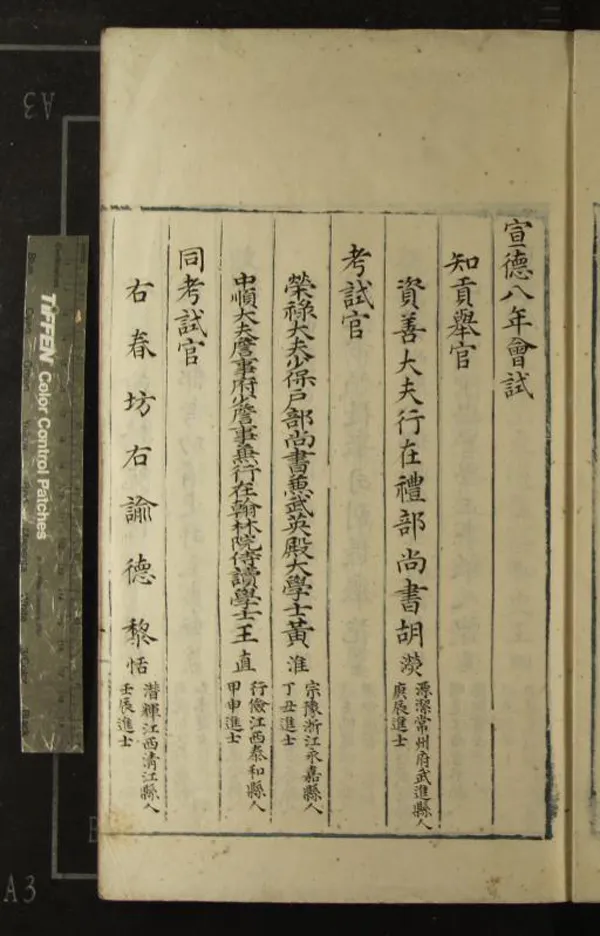 宣德八年會試
知貢舉官
資善大夫行在禮部尚書胡濙
源潔常州府武進縣人
庚辰進士
考試官
榮祿大夫少保戶部尚書兼武英殿大學士黃淮
宗豫浙江永嘉縣人
丁丑進士
中順大夫詹事府少詹事兼行在翰林院侍讀學士王直
行儉江西泰和縣人
甲申進士
同考試官
右春坊右諭德黎恬
潛輝江西清江縣人
壬辰進士
TIFFEN Color Control Patches
A3
A3